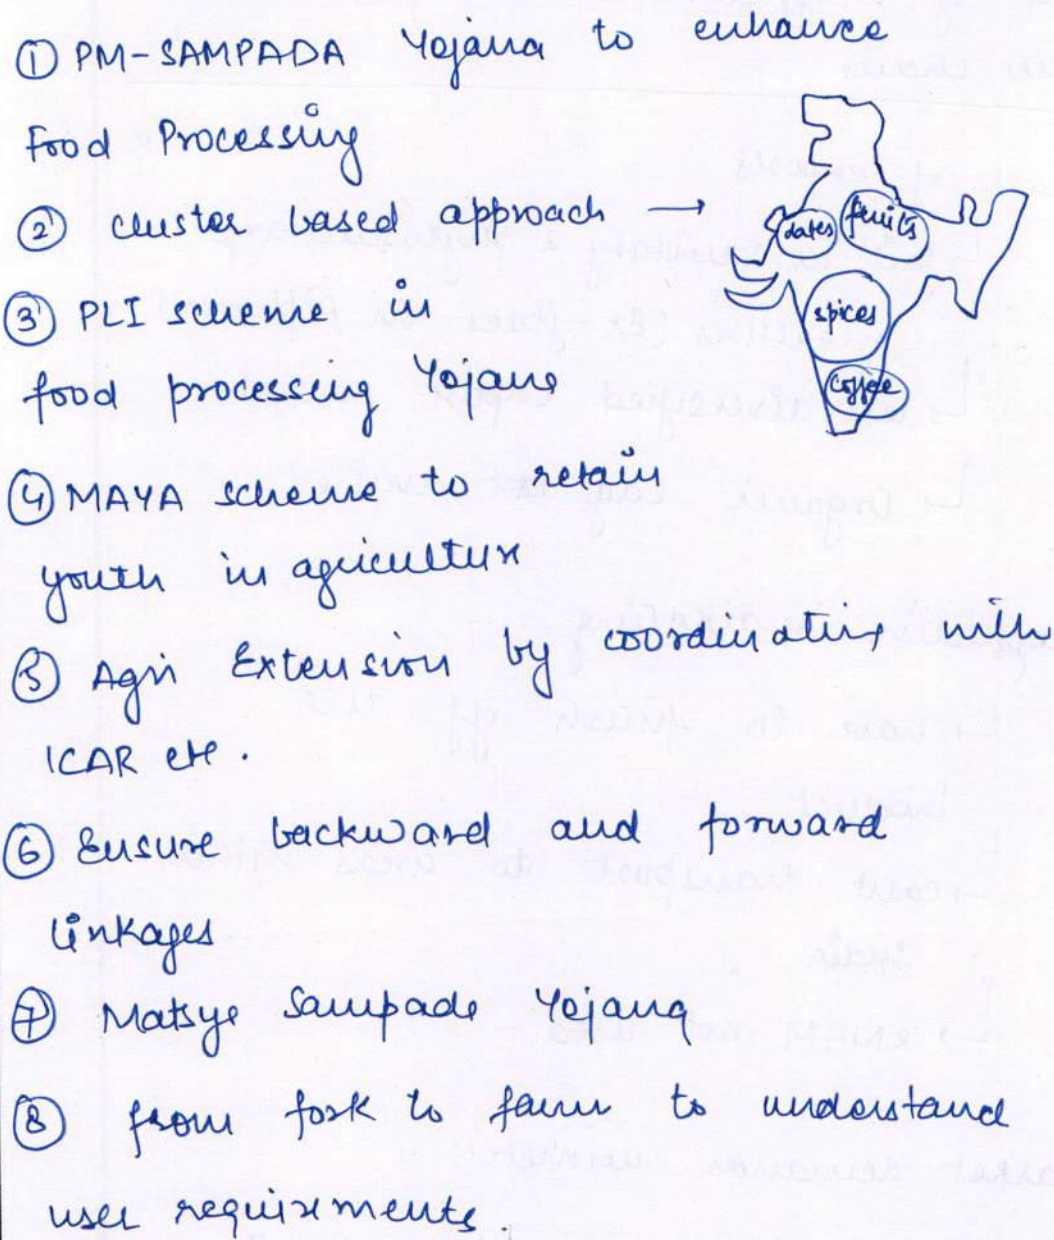 ① PM-SAMPADA Yojana to enhance
Food Processing
② cluster based approach →
dates fruits
spices
coffee
③ PLI scheme in
food processing Yojana
④ MAYA scheme to retain
youth in agriculture
⑤ Agri Extension by coordinating with
ICAR etc.
⑥ Ensure backward and forward
linkages
⑦ Matsya Sampada Yojana
⑧ from fork to farm to understand
user requirements.